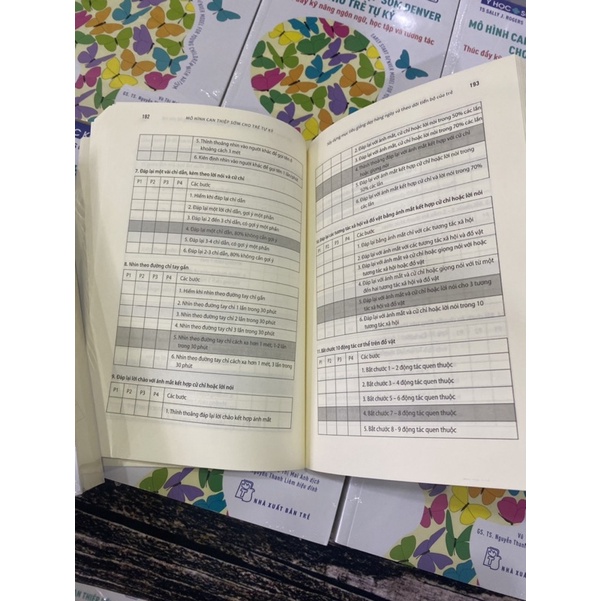 Y HỌC
TS SALLY J. ROGERS
SỚM DENVER
CHO TRẺ TỰ KỶ
đẩy kỹ năng ngôn ngữ, học tập và tương tác
MÔ HÌNH CAN
CHO
Thúc đẩy kỹ năng
192 MÔ HÌNH CAN THIỆP SỚM CHO TRẺ TỰ KỶ
5. Thỉnh thoảng nhìn vào người khác để gọi tên ở khoảng cách 3 mét
6. Kiên định nhìn vào người khác để gọi tên
7. Đáp lại một vài chỉ dẫn, kèm theo lời nói và cử chỉ
P1 P2 P3 P4 Các bước
1. Hiếm khi đáp lại chỉ dẫn
2. Đáp lại một chỉ dẫn, gợi ý một phần
3. Đáp lại 2 đến 3 chỉ dẫn, có gợi ý một phần
4. Đáp lại một chỉ dẫn, 80% không cần gợi ý
5. Đáp lại 3-4 chỉ dẫn, có gợi ý một phần
6. Đáp lại 2-3 chỉ dẫn, 80% không cần gợi ý
8. Nhìn theo đường chỉ tay gần.
P1 P2 P3 P4 Các bước
1. Hiếm khi nhìn theo đường chỉ tay gần
2. Nhìn theo đường tay chỉ 1 lần trong 30 phút
3. Nhìn theo đường tay chỉ 2 lần trong 30 phút
4. Nhìn theo đường tay chỉ 3 lần trong 30 phút
5. Nhìn theo đường tay chỉ cách xa hơn 1 mét; 1-2 lần trong 30 phút
6. Nhìn theo đường tay chỉ cách xa hơn 1 mét, 3 lần trong 30 phút
9. Đáp lại lời chào với ánh mắt kết hợp cử chỉ hoặc lời nói
P1 P2 P3 P4 Các bước
1. Thỉnh thoảng đáp lại lời chào kết hợp ánh mắt
193
2. Đáp lại với ánh mắt, cử chỉ hoặc lời nói trong 50% các lần
3. Đáp lại với ánh mắt, cử chỉ hoặc lời nói trong 70% các lần
6. Đáp lại với ánh mắt kết hợp cử chỉ và lời nói trong 70% các lần
10. Đáp lại các tương tác xã hội và đồ vật bằng ánh mắt kết hợp cử chỉ hoặc lời nói
P1 P2 P3 P4 Các bước
1. Đáp lại bằng ánh mắt chỉ với các tương tác xã hội
2. Đáp lại với ánh mắt với các tương tác xã hội và đồ vật
3. Đáp lại với ánh mắt và cử chỉ hoặc giọng nói với tương tác xã hội hoặc đồ vật
4. Đáp lại với ánh mắt và cử chỉ hoặc giọng nói với từ một đến hai tương tác xã hội và đồ vật
5. Đáp lại với ánh mắt và cử chỉ hoặc lời nói cho 3 tương tác xã hội
6. Đáp lại với ánh mắt và cử chỉ hoặc lời nói trong 10 tương tác xã hội
11. Bắt chước 10 động tác cơ thể trên đồ vật
P1 P2 P3 P4 Các bước
1. Bắt chước 1 – 2 động tác quen thuộc
2. Bắt chước 3 – 4 động tác quen thuộc
3. Bắt chước 5 – 6 động tác quen thuộc
4. Bắt chước 7 – 8 động tác quen thuộc
5. Bắt chước 8 - 9 động tác quen thuộc
Thị Mai Anh dịch
Nguyễn Thanh Liêm hiệu đính
NHÀ XUẤT BẢN TRẺ
GS. TS. Nguyễn Thanh
NHÀ XUẤT